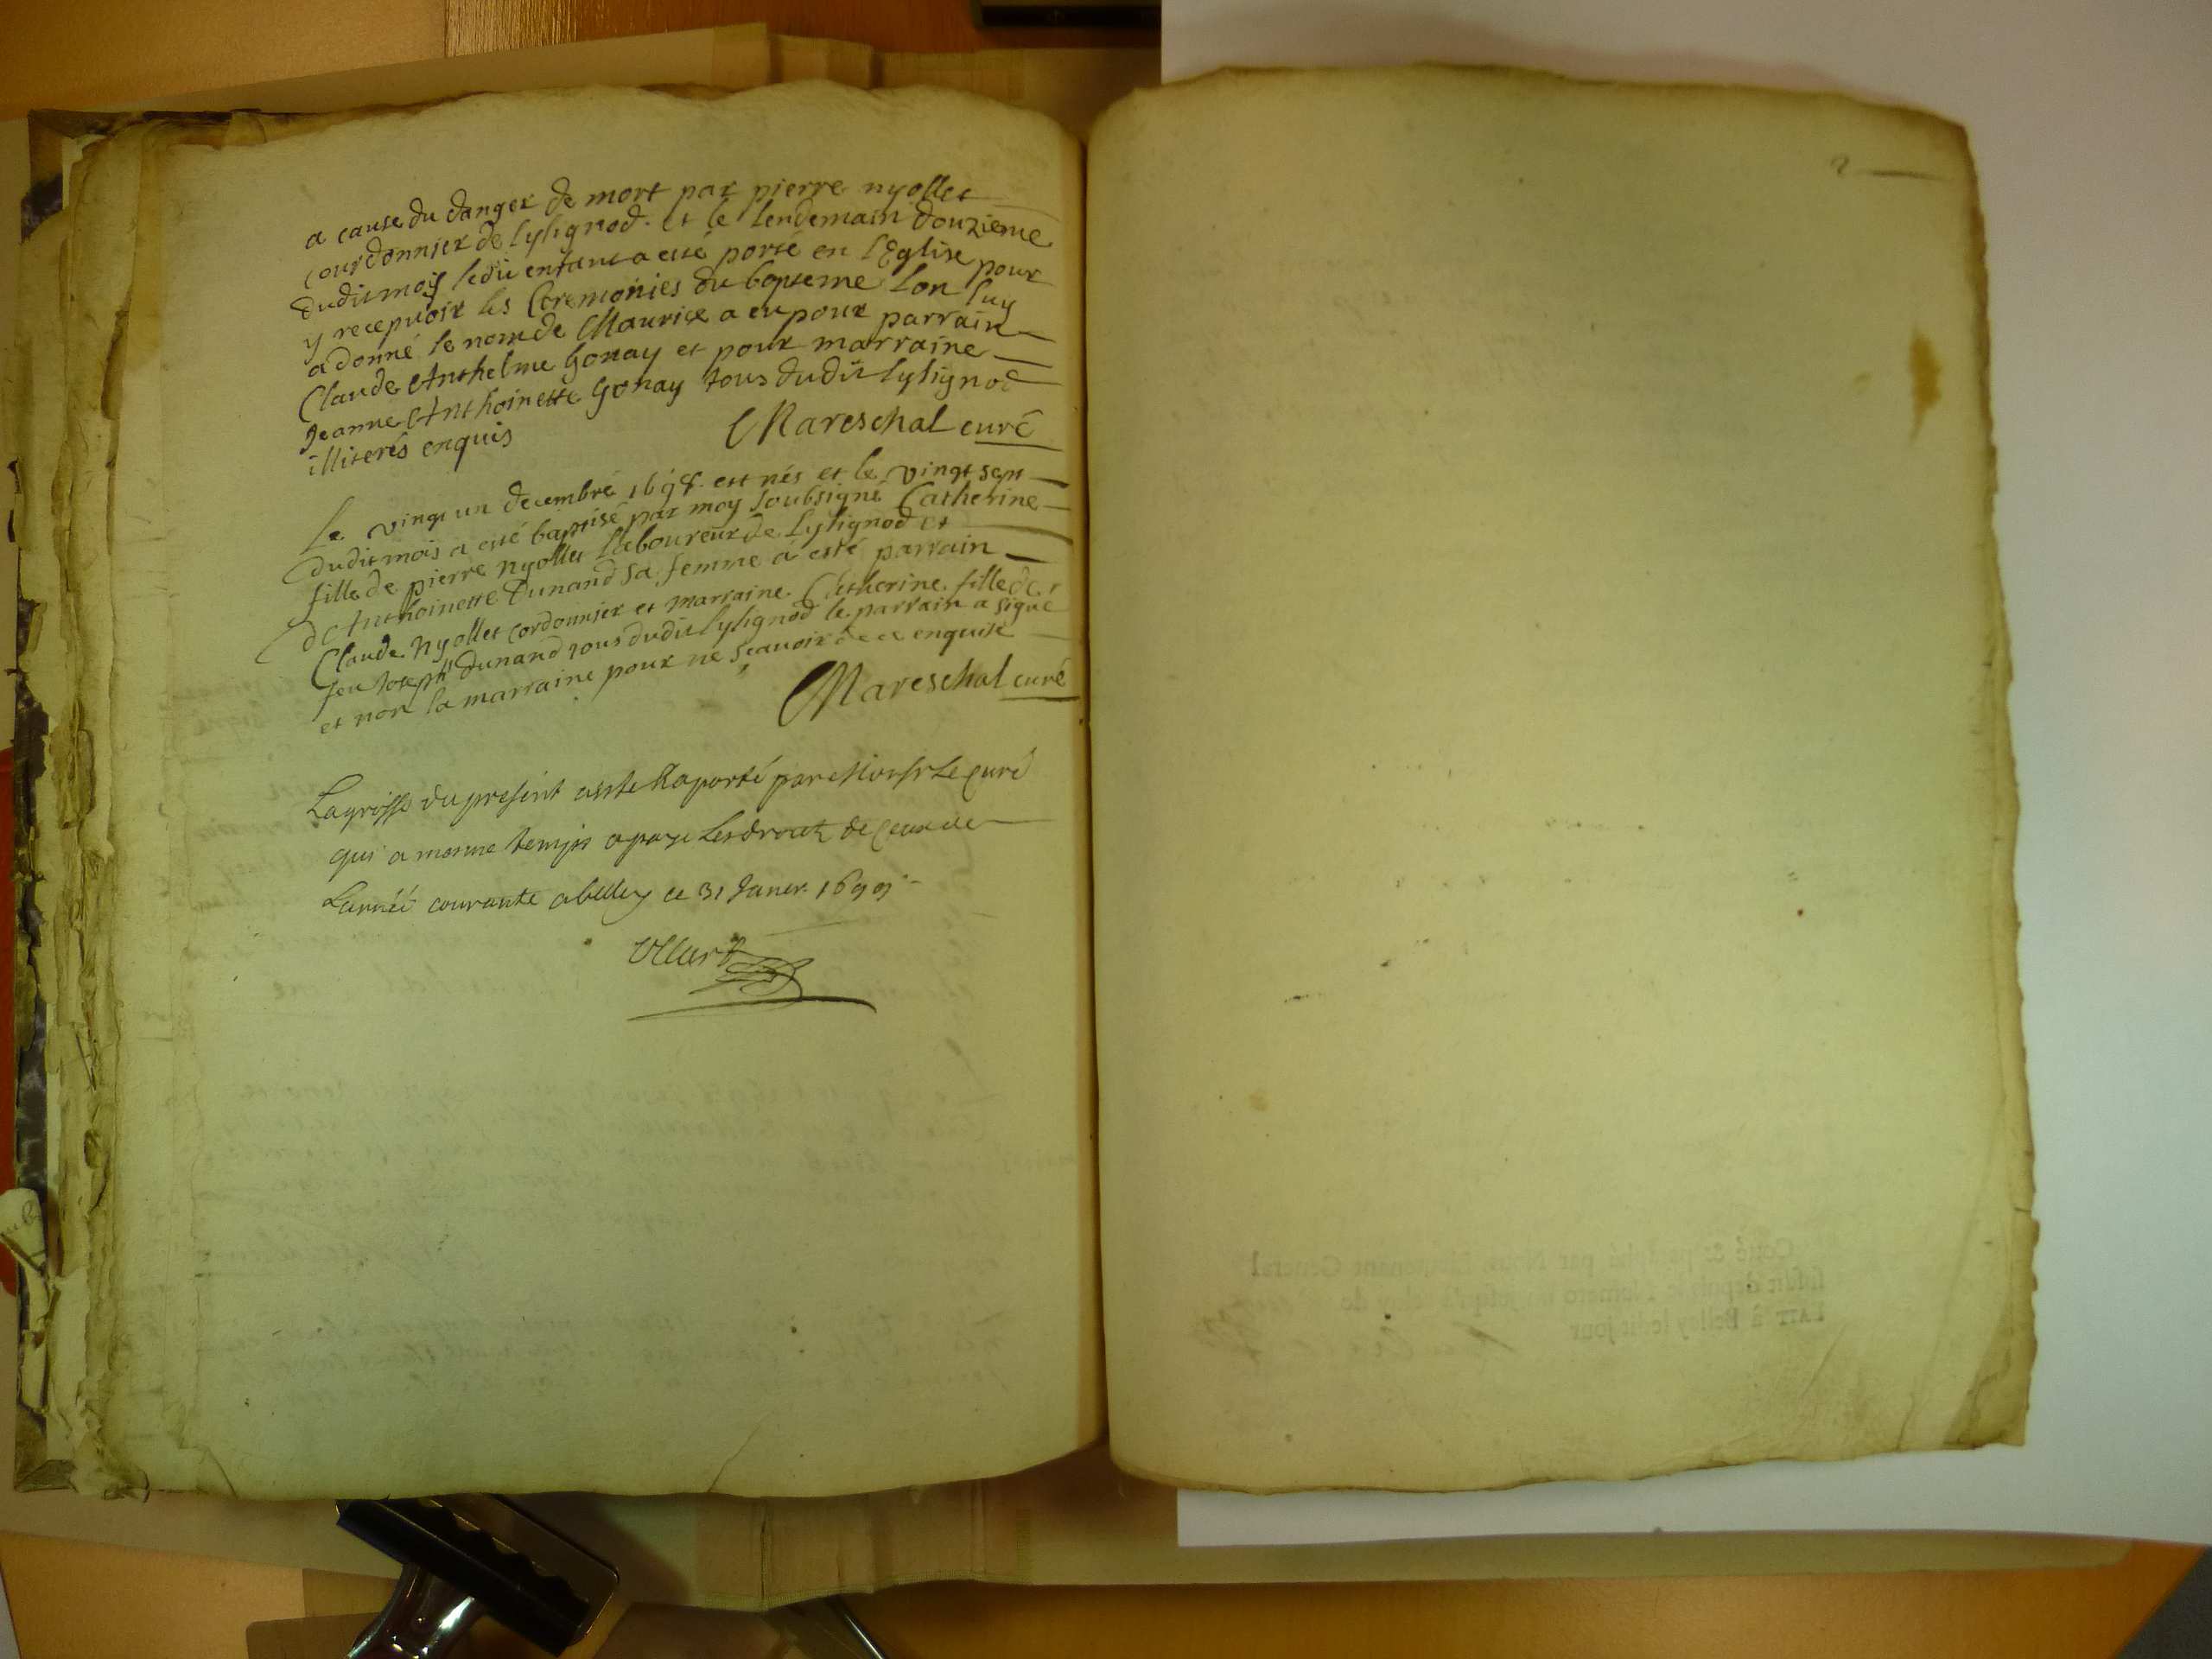 a cause du danger de mort par pierre nyollet
courdonnier de lylignod. et le lendemain douzieme
dudit mois ledit enfant a esté porté en l'Eglise pour
y recepuoir les Ceremonies du bapteme lon luy
a donné le nom de Maurice a eu pour parrain
Claude Anthelme Gonay et pour marraine
Jeanne Anthoinette Gonay tous dudit lylignod
illiterés enquis
Mareschal curé
Le vingt un decembre 1698. est nés et le vingt sept
dudit mois a esté baptisé par moy soubsigné Catherine
fille de pierre nyollet laboureur de Lylignod et
d'Anthoinette Dunand sa femme a esté parrain
Claude Nyollet cordonnier et marraine Catherine fille de
feu Joseph dunand tous dudit lylignod le parrain a signé
et non la marraine pour ne scauoir de ce enquise
Mareschal curé
La grosse du present a esté Raporté par Le curé
qui a mesme temps a paye Les droits de
L'année courante a belley ce 31 Janer. 1699
2
Cotté & paraphé par Nous, Lieutenant General
susdit depuis le Numero jusqu'à celuy de
FAIT à Belley ledit jour